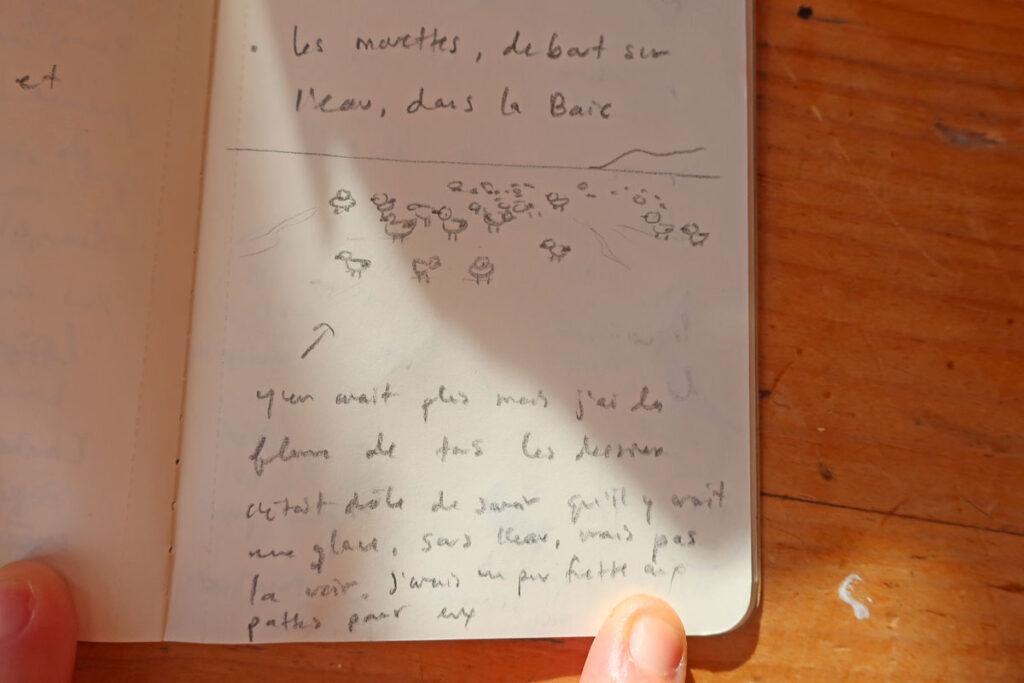 et
• les mouettes, debout sur
l'eau, dans la Baie
y'en avait plus mais j'ai la
flemme de tous les dessiner
c'était drôle de savoir qu'il y avait
une glace, sous l'eau, mais pas
la voir. j'avais un peu frette aux
pattes pour eux